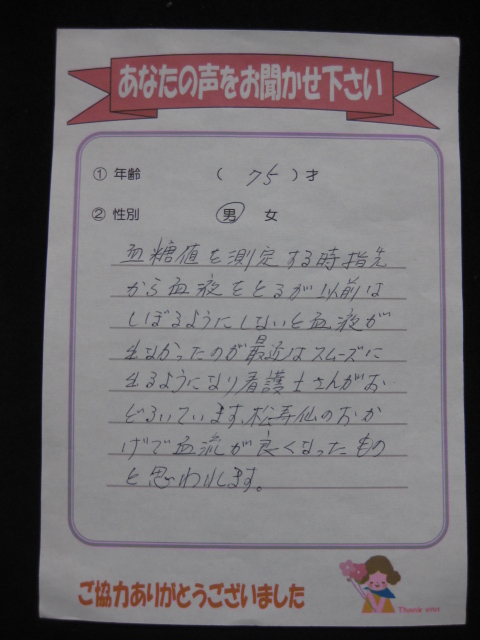 あなたの声をお聞かせ下さい
① 年齢 ( 75 ) 才
② 性別 男 女
血糖値を測定する時指先
から血液をとるが以前は
しぼるようにしないと血液が
出なかったのが最近はスムーズに
出るようになり看護士さんがお
どろいています、松寿仙のおか
げで血流が良くなったもの
と思われします。
ご協力ありがとうございました
Thank you